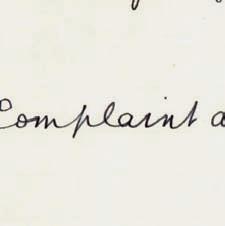 Complaint a